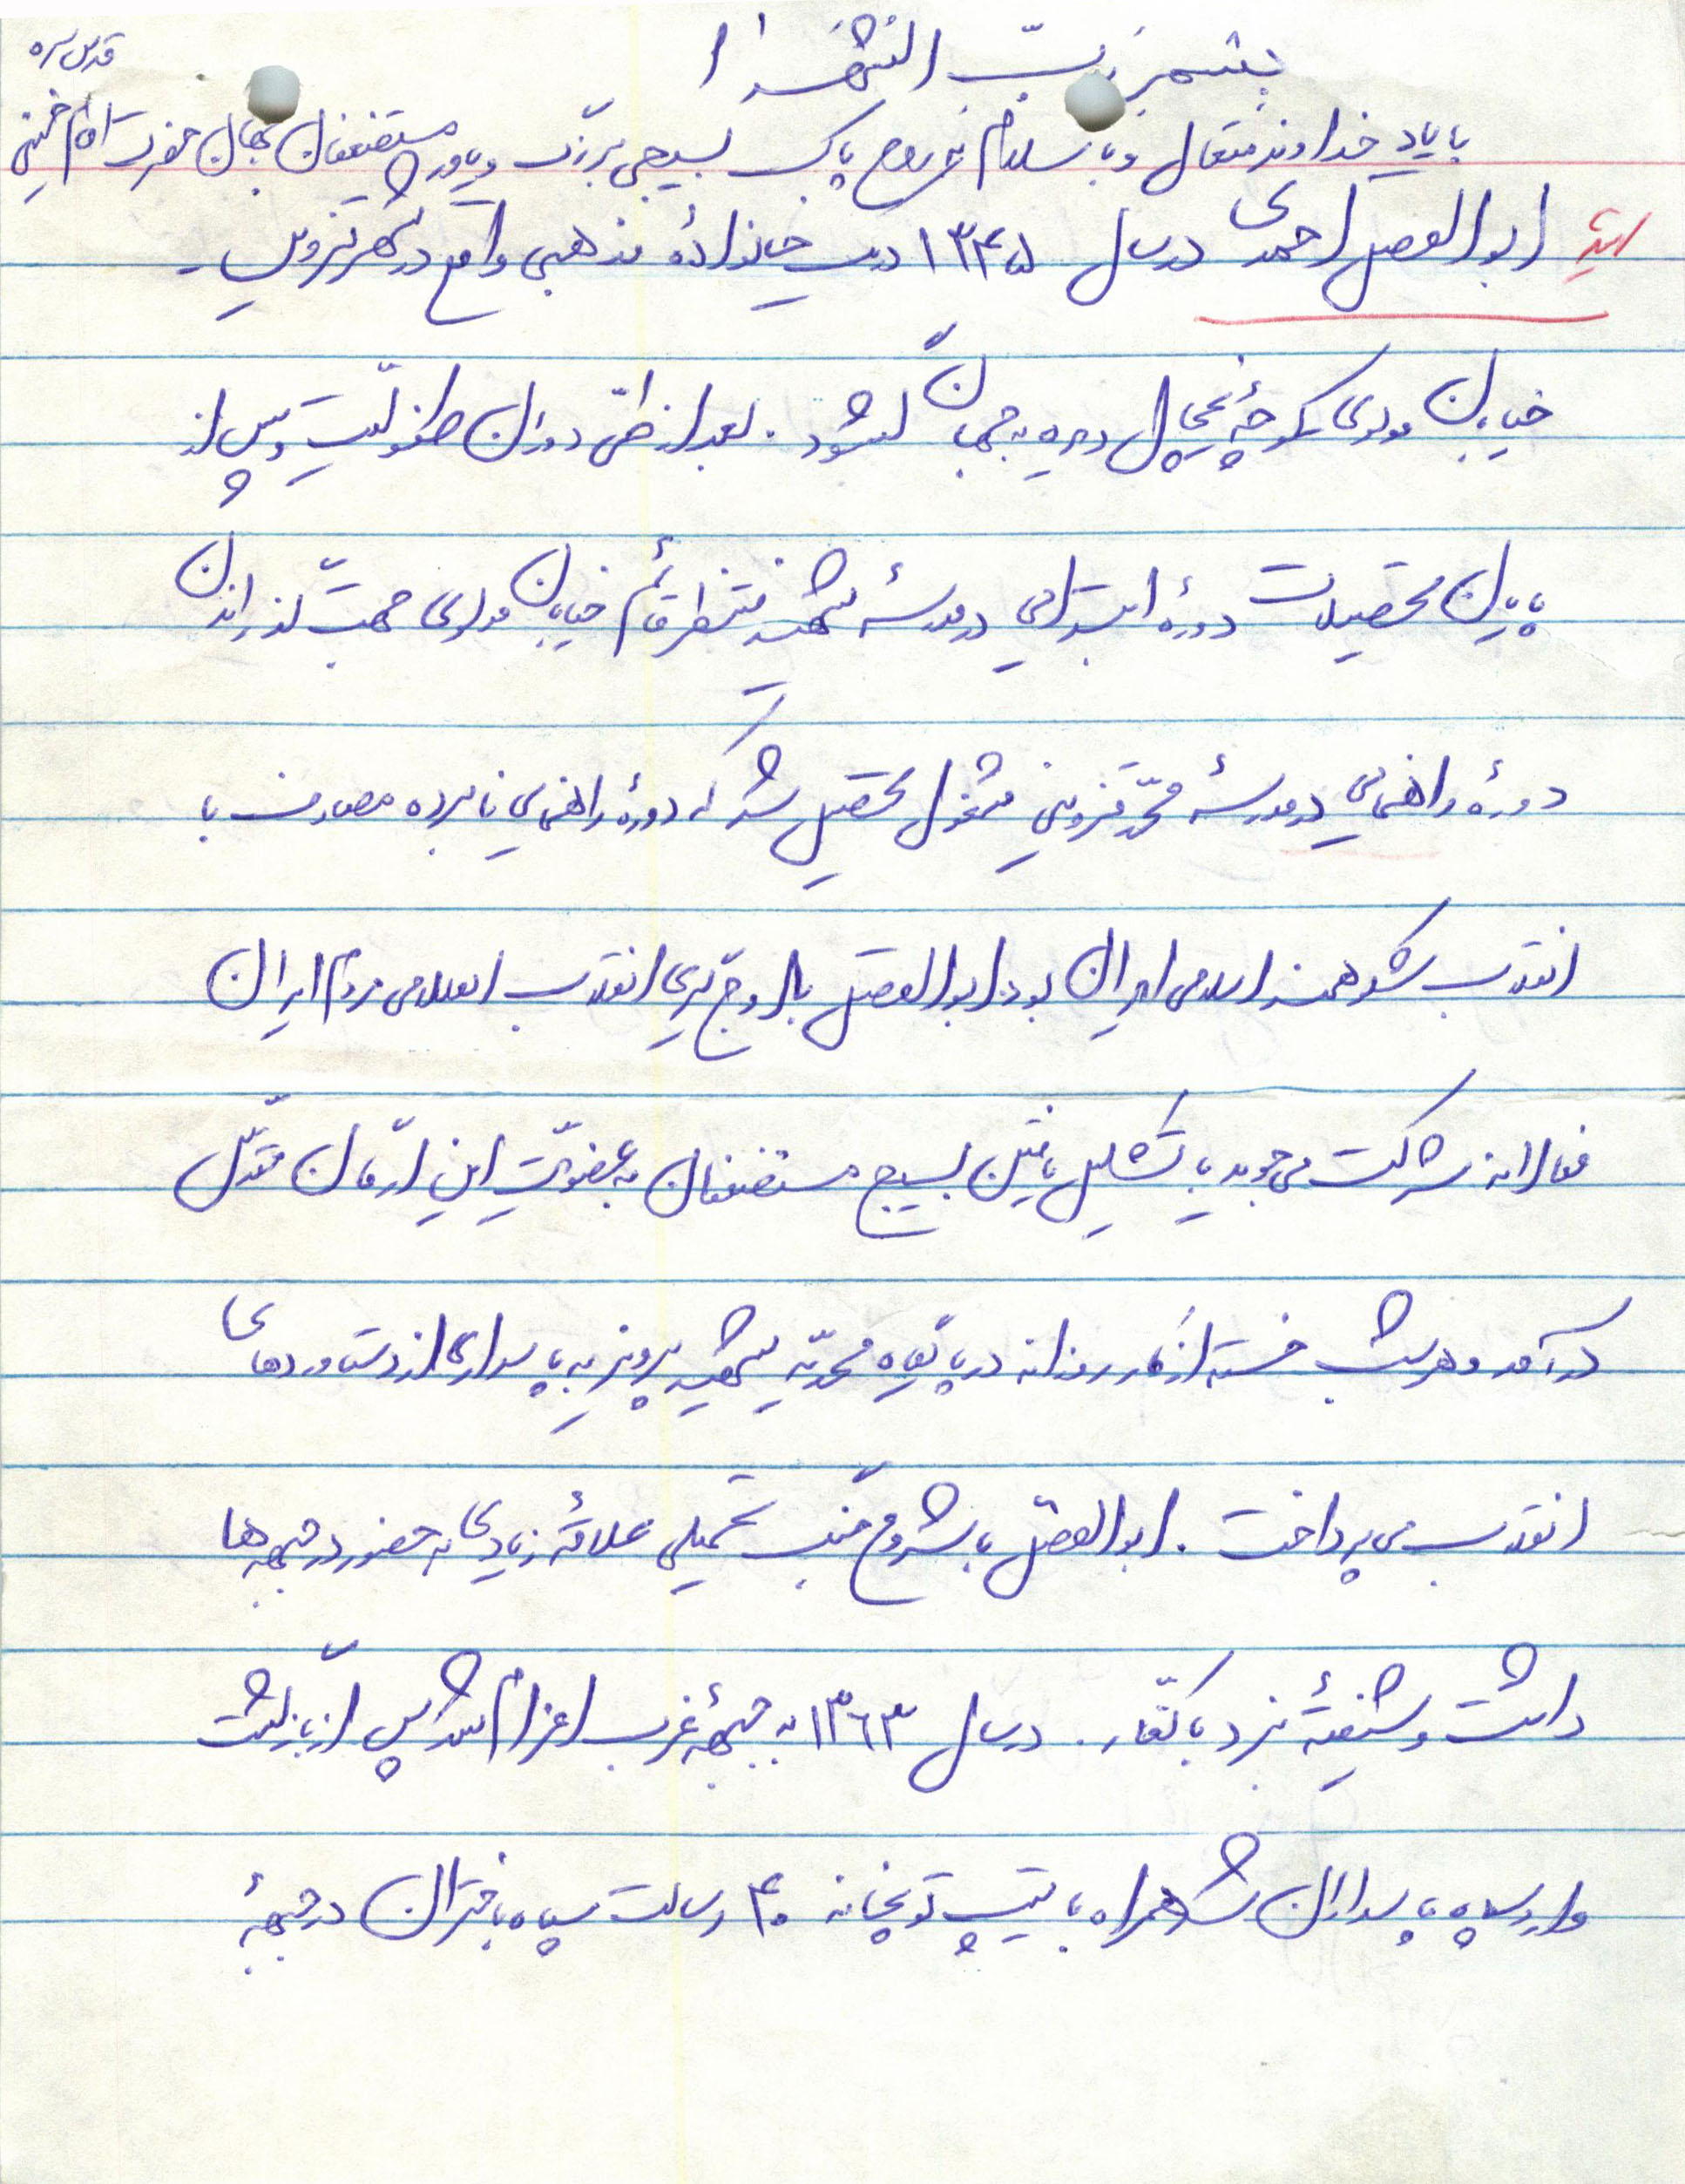 بسم ربّ الشهدا
قدس سره
با یاد خداوند متعال و با سلام به روح پاک بسیجی بزرگ و یاور مستضعفان جهان حضرت امام خمینی
شهید ابوالفضل احمدی در سال ۱۳۴۵ در خانوادهٔ مذهبی واقع در شهر قزوین -
خیابان مولوی کوچهٔ یخچال دیده به جهان گشود. بعد از طیّ دوران طفولیّت و پس از
پایان تحصیلات دورهٔ ابتدایی در مدرسهٔ شهید منتظر قائم خیابان مولوی جهت گذراندن
دورهٔ راهنمایی در مدرسهٔ محمّد قزوینی مشغول تحصیل شد که دورهٔ راهنمایی نامبرده مصادف با
انقلاب شکوهمند اسلامی ایران بود. ابوالفضل با اوج گیری انقلاب اسلامی مردم ایران
فعالانه شرکت می جوید با تشکیل یافتن بسیج مستضعفان به عضویّت این ارگان مقدّس
درآمد و هر شب خسته از کار روزانه در پایگاه محمدیّه شهید پرویز به پاسداری از دستاوردهای
انقلاب می پرداخت. ابوالفضل با شروع جنگ تحمیلی علاقهٔ زیادی به حضور در جبهه ها
داشت و شیفتهٔ نبرد با کفّار. در سال ۱۳۶۳ به جبههٔ غرب اعزام شد پس از بازگشت
وارد سپاه پاسداران شد همراه با تیپ توپخانه ۴۰ رسالت سپاه باختران در جبههٔ